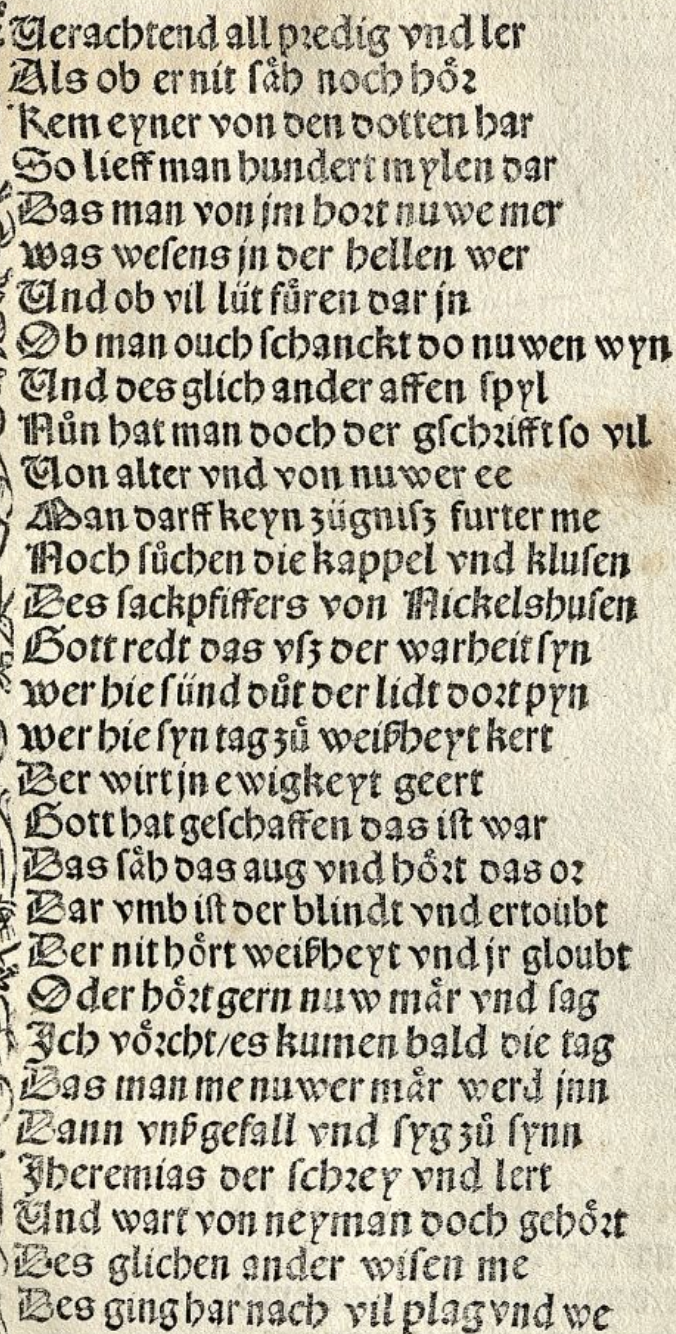 Verachtend all predig vnd ler
Als ob er nit såh noch hoͤr
Kem eyner von den dotten har
So lieff man hundert mylen dar
Das man von jm hort nuwe mer
was wesens jn der hellen wer
Vnd ob vil lüt fůren dar jn
Ob man ouch schanckt do nuwen wyn
Vnd des glich ander affen spyl
Nůn hat man doch der gschrifft so vil
Von alter vnd von nuwer ee
Man darff keyn zügnisz furter me
Noch sůchen die kappel vnd klusen
Des sackpfiffers von Nickelshusen
Gott redt das vsz der warheit syn
wer hie sünd důt der lidt dort pyn
wer hie syn tag zů weißheyt kert
Der wirt jn ewigkeyt geert
Gott hat geschaffen das ist war
Das såh das aug vnd hoͤrt das or
Dar vmb ist der blindt vnd ertoubt
Der nit hoͤrt weißheyt vnd jr gloubt
Oder hoͤrt gern nuw mår vnd sag
Jch voͤrcht/es kumen bald die tag
Das man me nuwer mår werd jnn
Dann vnß gefall vnd syg zů synn
Jheremias der schrey vnd lert
Vnd wart von neyman doch gehoͤrt
Des glichen ander wisen me
Des ging har nach vil plag vnd we